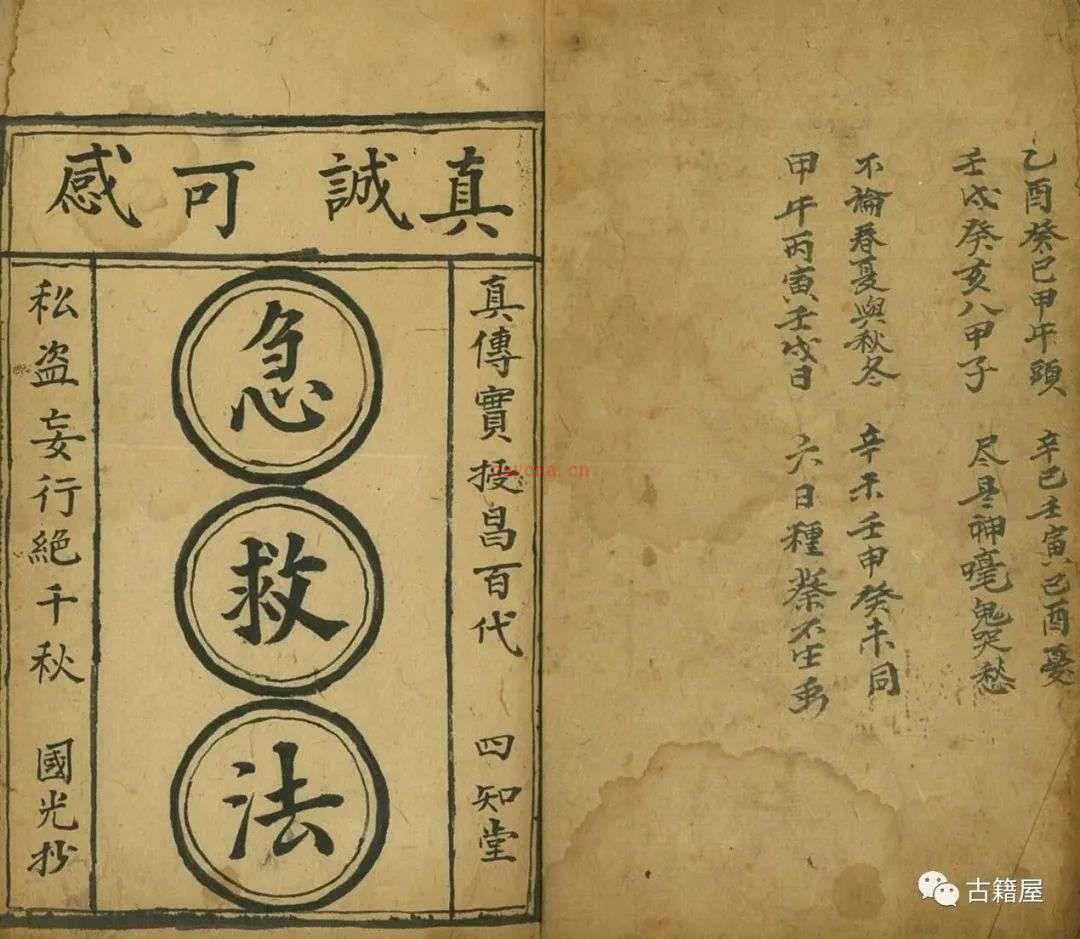 乙酉癸巳甲午頭 辛巳壬寅己酉憂
壬戌癸亥八甲子 尽是神嚎鬼哭愁
不論春夏與秋冬 辛未壬申癸未同
甲午丙寅壬戌日 六日種
真誠可感
真傳實授昌百代 四知堂
急救法
私盗妄行絕千秋 國光抄
yayona.cn
古籍屋